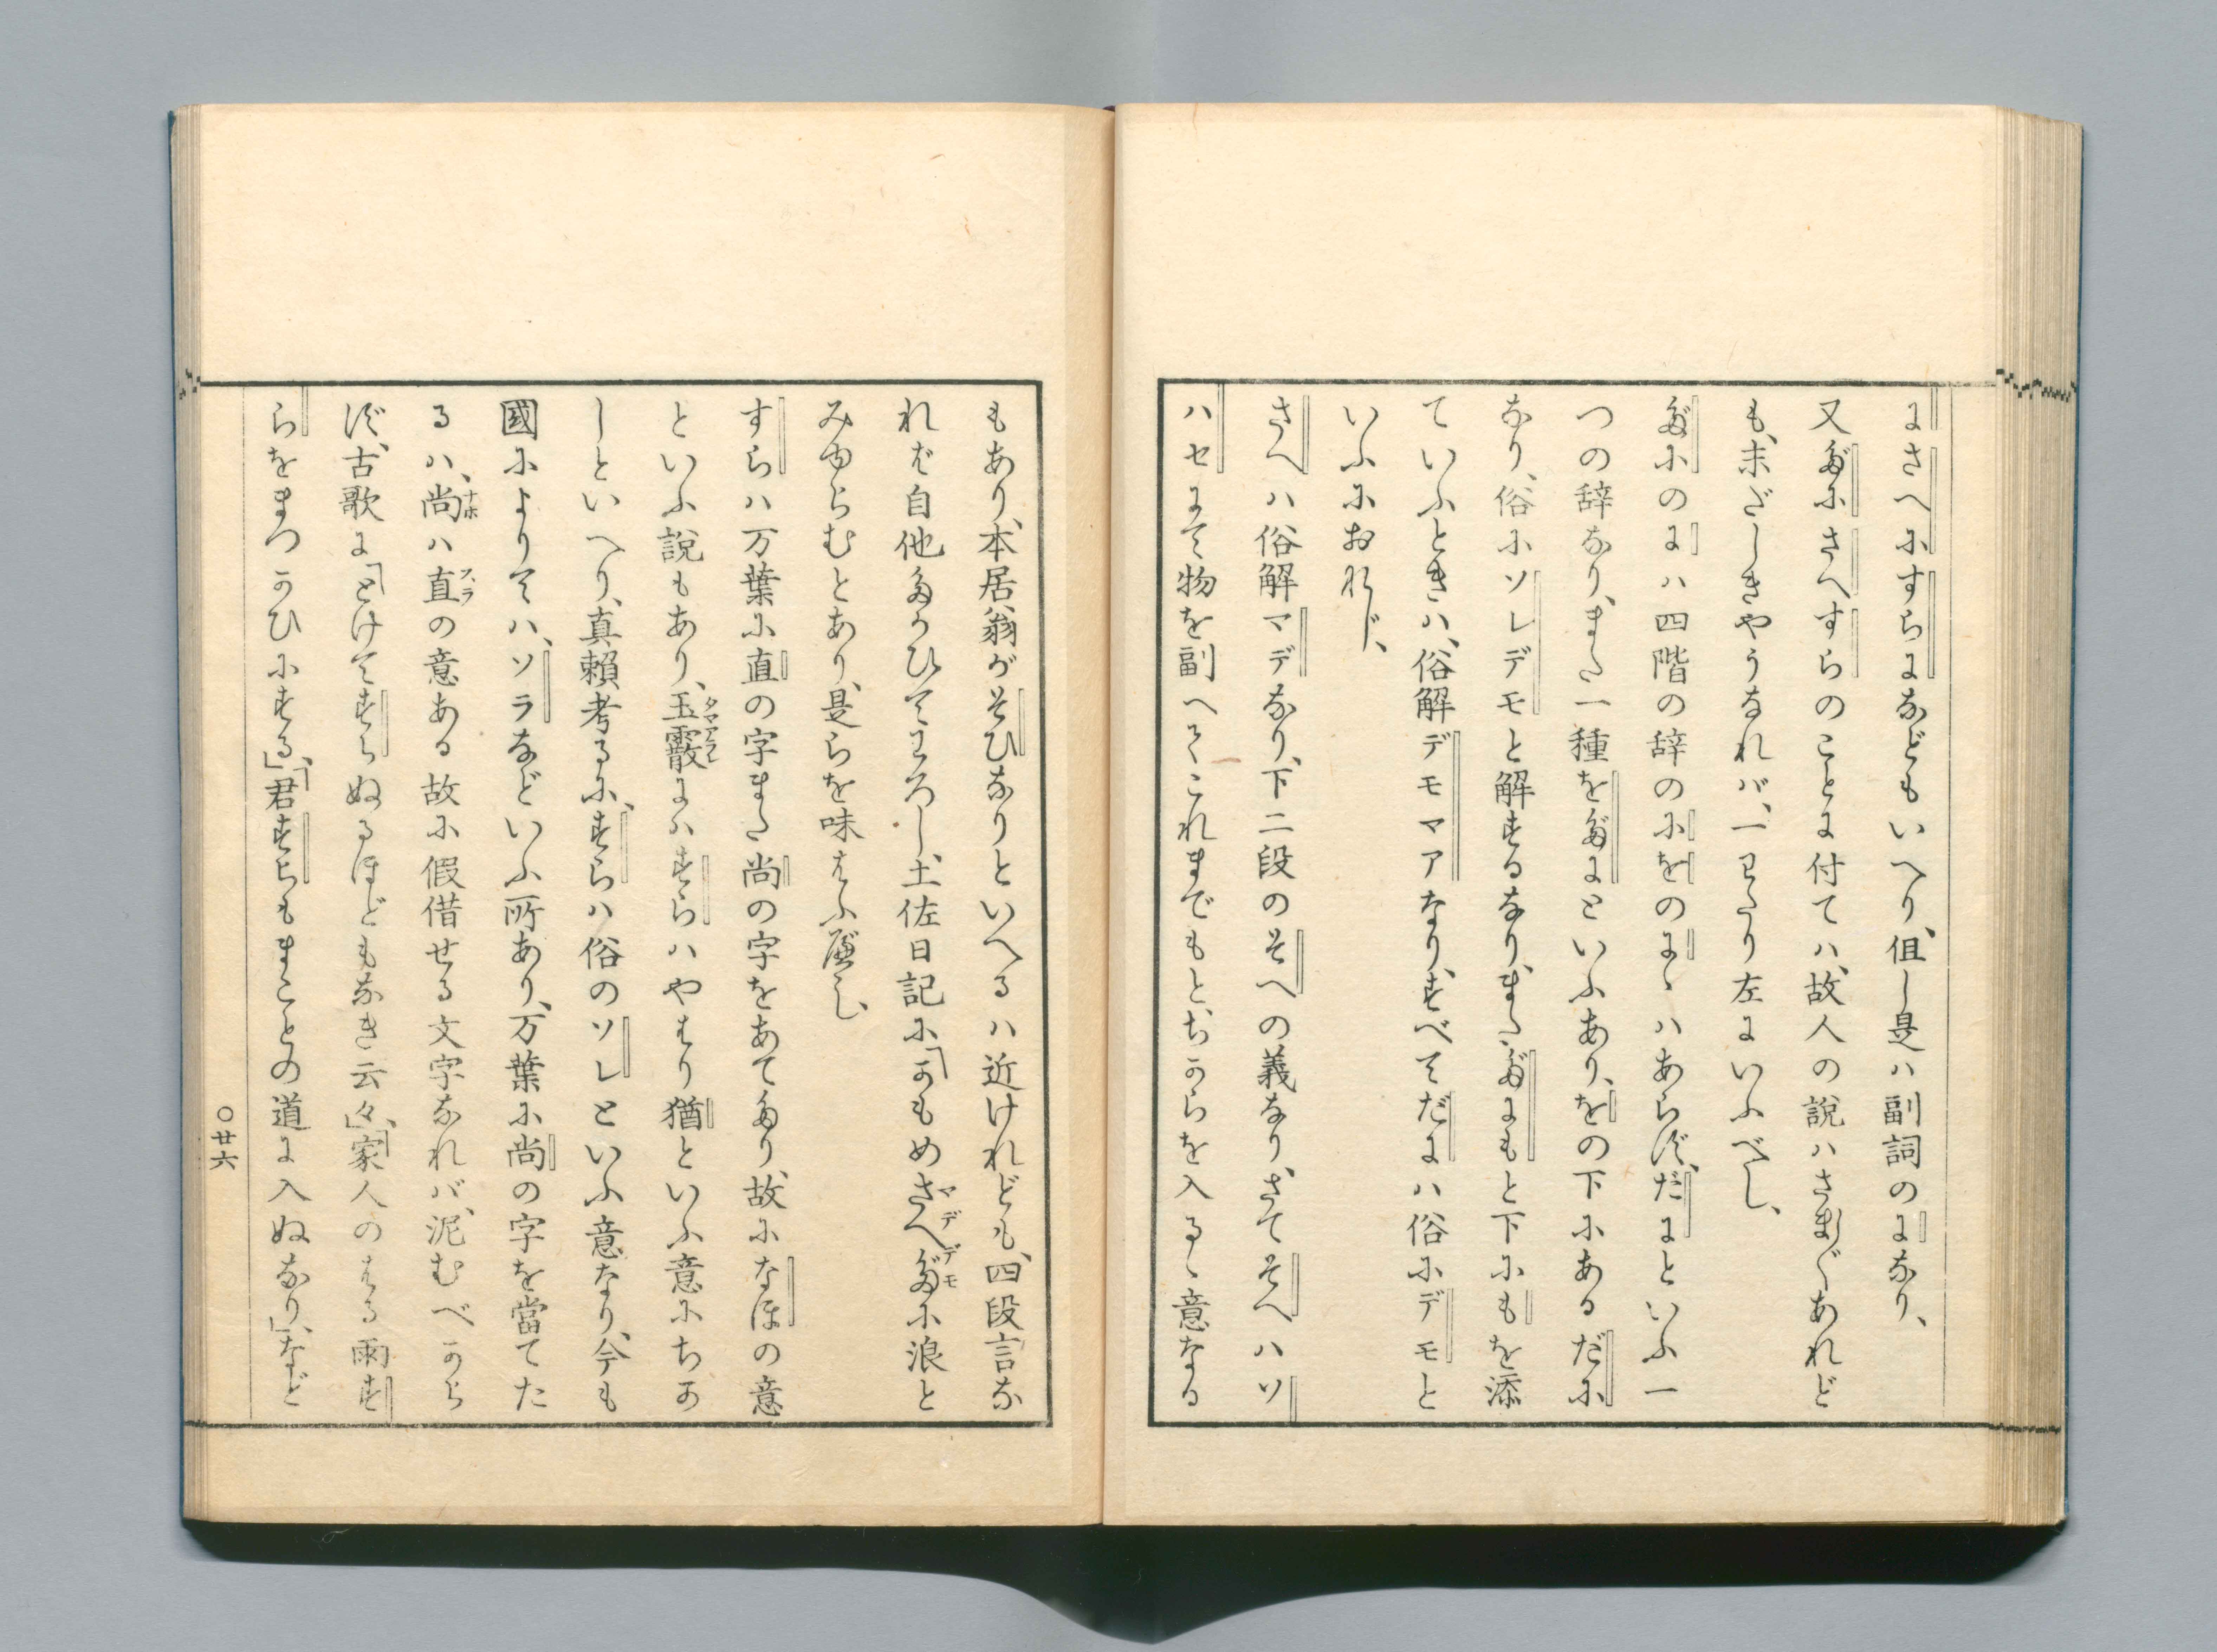 にさへにすらになどもいへり、但し是ハ副詞のになり、
又だにさへすらのことに付てハ、故人の説ハさま〴〵あれど
も、末ざしきやうなれバ、一わたり左にいふべし、
だにのにハ四階の辞のにをのにゝハあらず、だにといふ一
つの辞なり、また一種をだにといふあり、をの下にあるだに
なり、俗にソレデモと解するなり、まただにもと下にもを添
ていふときハ、俗解デモマアなり、すべてだにハ俗にデモと
いふにおなじ、
さへハ俗解マデなり、下二段のそへの義なり、さてそへハソ
ハセにて物を副へてこれまでもと、ちからを入るゝ意なる
もあり、本居翁がそひなりといへるハ近けれども、四段言な
れば自他たがひてわろし、土佐日記に「かもめさへマデだにデモ浪と
みゆらむとあり、是らを味はふ べし、
すらハ万葉に直の字また尚の字をあてたり、故になほの意
といふ説もあり、玉霰タマアラレにハすらハやはり猶といふ意にちか
しといへり、真頼考るに、すらハ俗のソレといふ意なり、今も
國によりてハ、ソラなどいふ所あり、万葉に尚の字を當てた
るハ、尚ナホハ直スラの意ある故に假借せる文字なれバ、泥むべから
ず、古歌に「とけてすらぬるほどもなき云々」、「家人のはる雨す
らをまつかひにする」、「君すらもまことの道に入ぬなり」、など
〇廿六